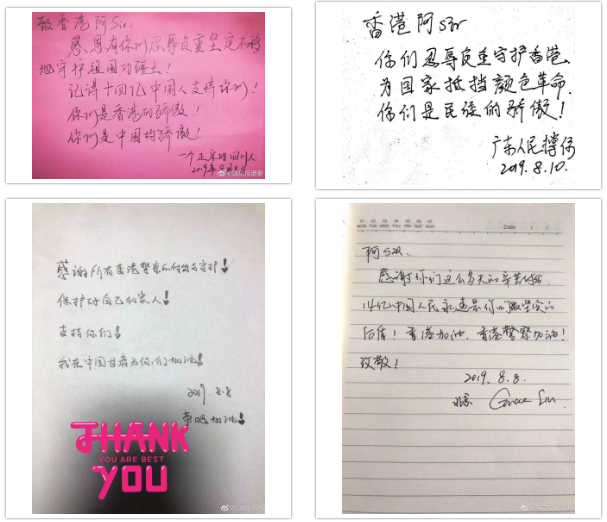 致香港阿Sir:
感恩有你们忍辱负重坚定不移
地守护祖国的疆土!
记得十四亿中国人支持你们!
你们是香港的骄傲!
你们是中国的骄傲!
一个正宗的四川人
2019年8月
香港阿Sir
你们忍辱负重守护香港
为国家抵挡颜色革命
你们是民族的骄傲!
广东人民撑你
2019.8.10.
感谢所有香港警察的付出与守护!
保护好自己和家人!
支持你们!
我在中国甘肃为你们加油!
2019.8.8
加油!
THANK
YOU ARE BEST
YOU
Date: / /
阿Sir.
感谢你们这么多天的辛苦付出.
14亿中国人民永远是你们最坚实的
后盾!香港加油.香港警察加油!
致敬!
2019.8.8.
北京